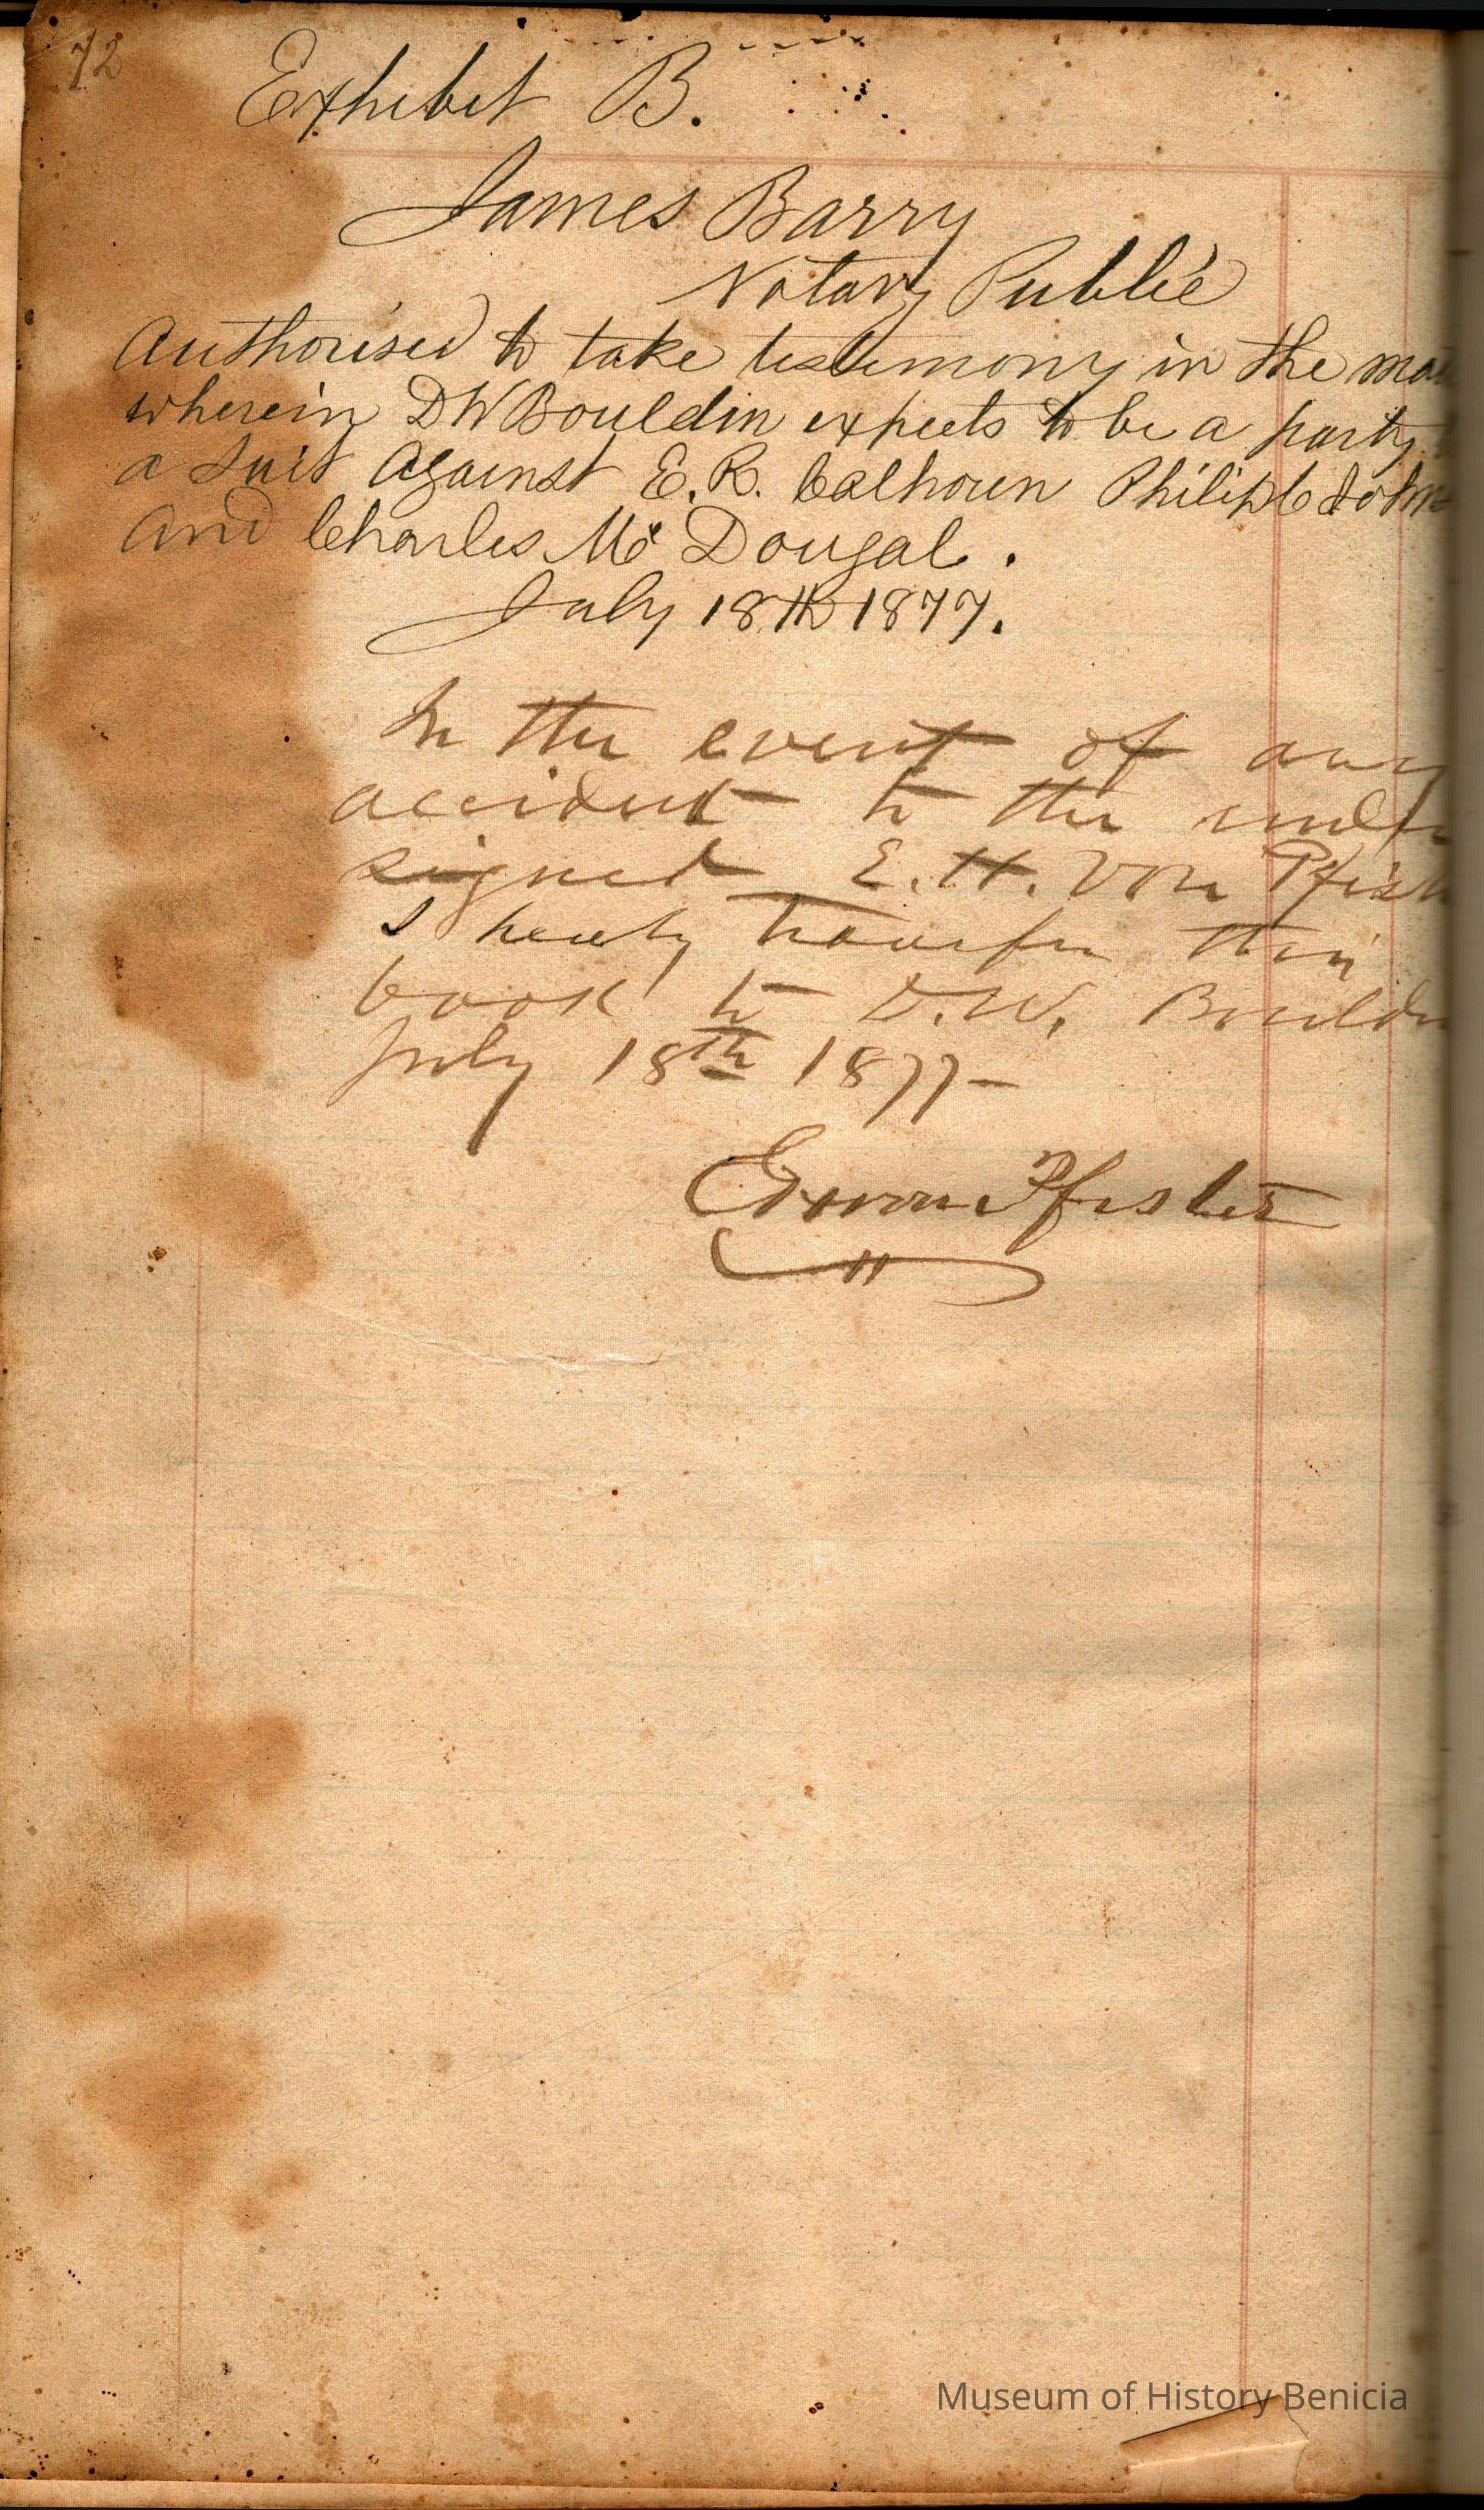 72
Exhibit B.
James Barry
Notary Public
Authorised to take testimony in the
wherein D W Bouldin expects to be a party
a Suit Against E. R. Calhoun Philip
And Charles Mc Dougal.
July 18th 1877.
In the event of any
accident to the
signed E. H. von
I hereby transfer this
book to D. W.
July 18th 1877 –
Pfister
Museum of History Benicia